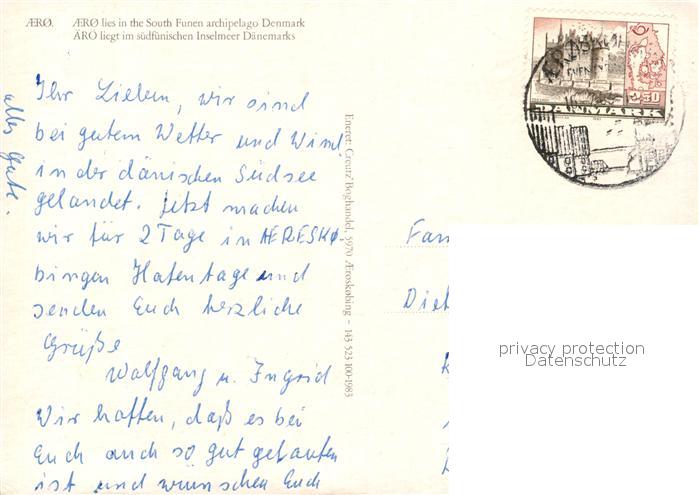 ÆRØ. ÆRØ lies in the South Funen archipelago Denmark
ÄRÖ liegt im südfünischen Inselmeer Dänemarks
Ihr Lieben, wir sind
bei gutem Wetter und Wind
in der dänischen Südsee
gelandet. Jetzt machen
wir für 2 Tage in AERESKØ
bingen Hafentage und
senden Euch herzliche
Grüße
Wolfgang u. Ingrid
Wir hoffen, daß es bei
Euch auch so gut gelaufen
ist und wünschen Euch
alles Gute.
Eneret: Creutz' Boghandel, 5970 Ærøskøbing - 143 523 100-1983
2.50
DANMARK
Fam
Diet
privacy protection
Datenschutz